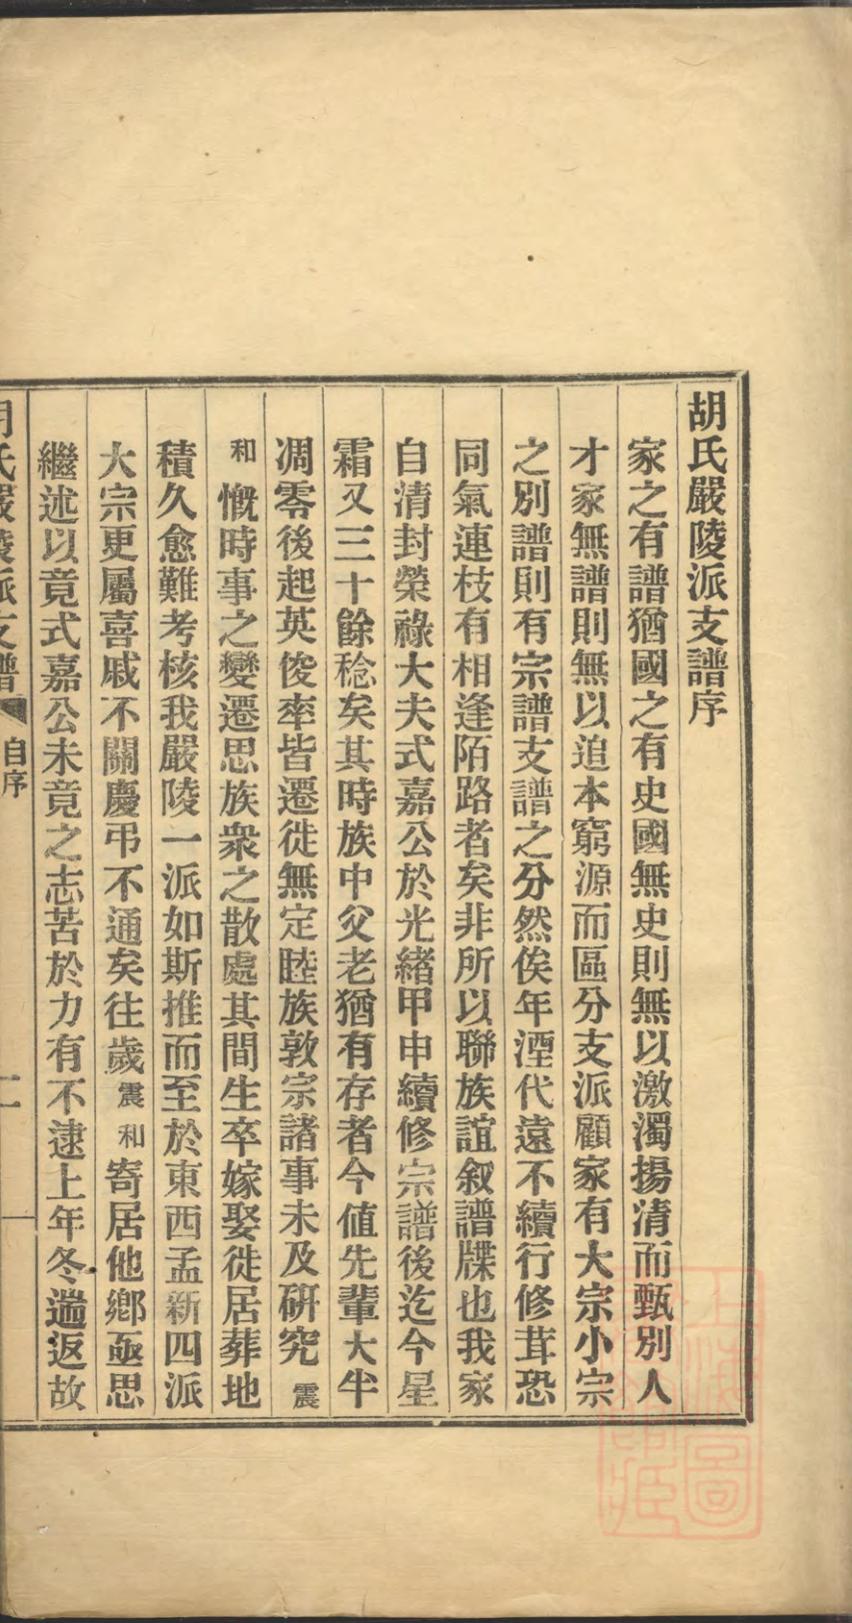 胡氏嚴陵派支譜序
家之有譜猶國之有史國無史則無以激濁揚清而甄別人
才家無譜則無以追本窮源而區分支派顧家有大宗小宗
之別譜則有宗譜支譜之分然俟年湮代遠不續行修茸恐
同氣連枝有相逢陌路者矣非所以聯族誼叙譜牒也我家
自清封榮祿大夫式嘉公於光緒甲申續修宗譜後迄今星
霜又三十餘稔矣其時族中父老猶有存者今值先輩大半
凋零後起英俊率皆遷徙無定睦族敦宗諸事未及研究震
和慨時事之變遷思族衆之散處其間生卒嫁娶徙居葬地
積久愈難考核我嚴陵一派如斯推而至於東西孟新四派
大宗更屬喜戚不關慶弔不通矣往歲震和寄居他鄉亟思
繼述以竟式嘉公未竟之志苦於力有不逮上年冬遄返故
胡氏嚴陵派支譜 自序 二
上海圖書館藏